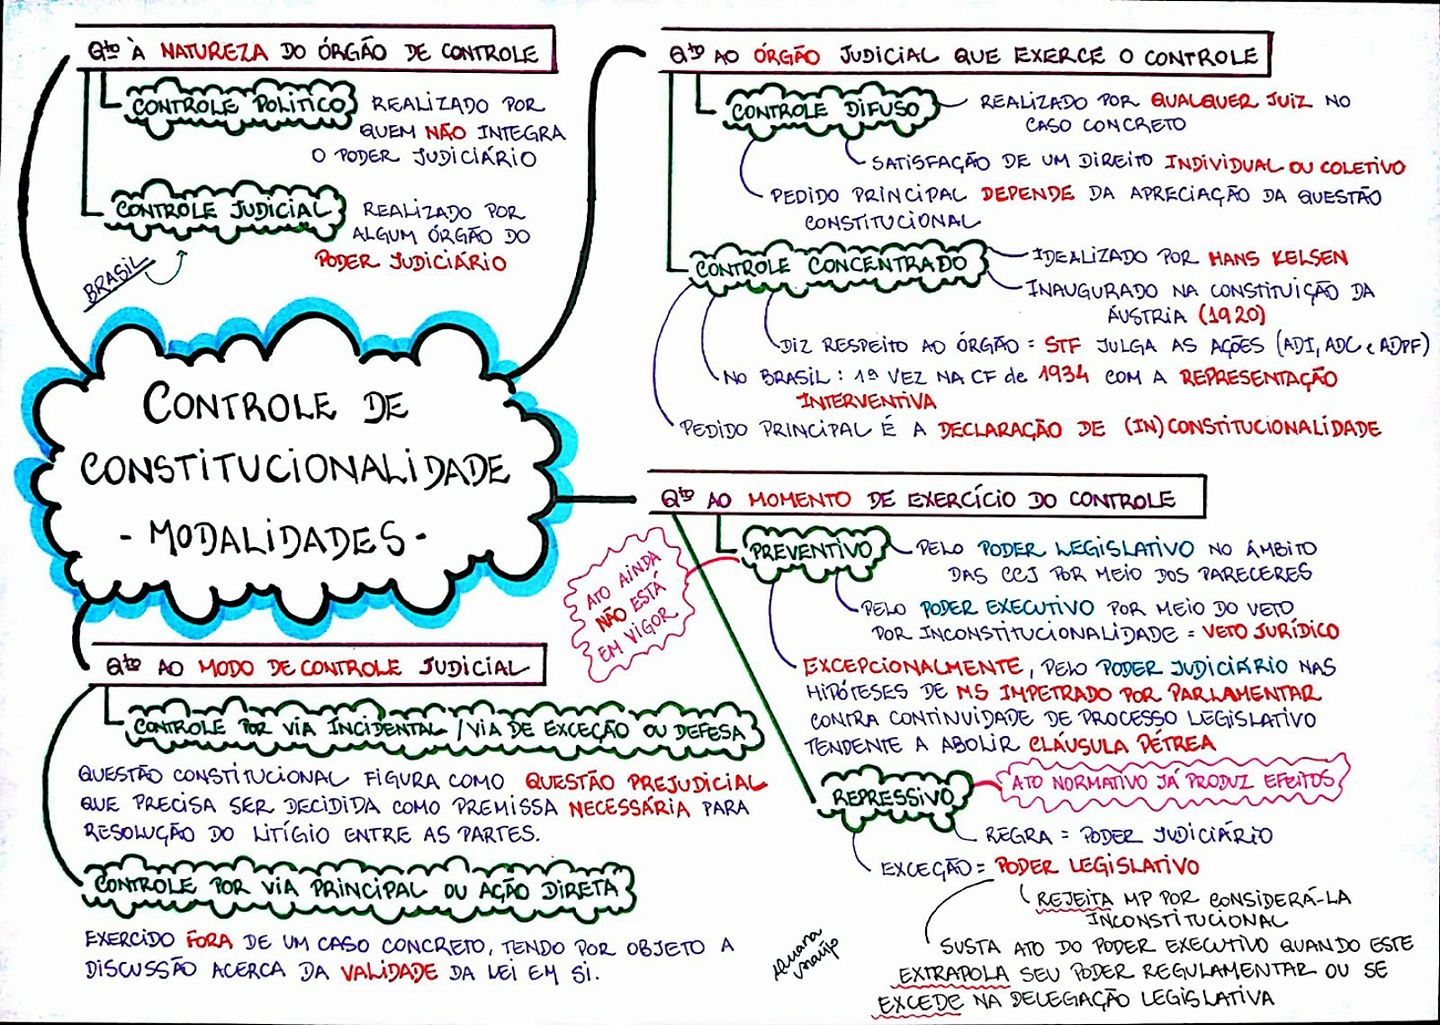 Qto À NATUREZA DO ÓRGÃO DE CONTROLE
CONTROLE POLÍTICO
REALIZADO POR
QUEM NÃO INTEGRA
O PODER JUDICIÁRIO
CONTROLE JUDICIAL
REALIZADO POR
ALGUM ÓRGÃO DO
PODER JUDICIÁRIO
BRASIL
Qto AO ÓRGÃO JUDICIAL QUE EXERCE O CONTROLE
CONTROLE DIFUSO
REALIZADO POR QUALQUER JUIZ NO
CASO CONCRETO
SATISFAÇÃO DE UM DIREITO INDIVIDUAL OU COLETIVO
PEDIDO PRINCIPAL DEPENDE DA APRECIAÇÃO DA QUESTÃO
CONSTITUCIONAL
CONTROLE CONCENTRADO
IDEALIZADO POR HANS KELSEN
INAUGURADO NA CONSTITUIÇÃO DA
ÁUSTRIA (1920)
DIZ RESPEITO AO ÓRGÃO = STF JULGA AS AÇÕES (ADI, ADC e ADPF)
NO BRASIL: 1ª VEZ NA CF de 1934 COM A REPRESENTAÇÃO
INTERVENTIVA
PEDIDO PRINCIPAL É A DECLARAÇÃO DE (IN)CONSTITUCIONALIDADE
CONTROLE DE
CONSTITUCIONALIDADE
- MODALIDADES -
Qto AO MOMENTO DE EXERCÍCIO DO CONTROLE
PREVENTIVO
ATO AINDA
NÃO ESTÁ
EM VIGOR
PELO PODER LEGISLATIVO NO ÂMBITO
DAS CCJ POR MEIO DOS PARECERES
PELO PODER EXECUTIVO POR MEIO DO VETO
POR INCONSTITUCIONALIDADE = VETO JURÍDICO
EXCEPCIONALMENTE, PELO PODER JUDICIÁRIO NAS
HIPÓTESES DE MS IMPETRADO POR PARLAMENTAR
CONTRA CONTINUIDADE DE PROCESSO LEGISLATIVO
TENDENTE A ABOLIR CLÁUSULA PÉTREA
REPRESSIVO
ATO NORMATIVO JÁ PRODUZ EFEITOS
REGRA = PODER JUDICIÁRIO
EXCEÇÃO = PODER LEGISLATIVO
REJEITA MP POR CONSIDERÁ-LA
INCONSTITUCIONAL
SUSTA ATO DO PODER EXECUTIVO QUANDO ESTE
EXTRAPOLA SEU PODER REGULAMENTAR OU SE
EXCEDE NA DELEGAÇÃO LEGISLATIVA
Qto AO MODO DE CONTROLE JUDICIAL
CONTROLE POR VIA INCIDENTAL / VIA DE EXCEÇÃO OU DEFESA
QUESTÃO CONSTITUCIONAL FIGURA COMO QUESTÃO PREJUDICIAL
QUE PRECISA SER DECIDIDA COMO PREMISSA NECESSÁRIA PARA
RESOLUÇÃO DO LITÍGIO ENTRE AS PARTES.
CONTROLE POR VIA PRINCIPAL OU AÇÃO DIRETA
EXERCIDO FORA DE UM CASO CONCRETO, TENDO POR OBJETO A
DISCUSSÃO ACERCA DA VALIDADE DA LEI EM SI.